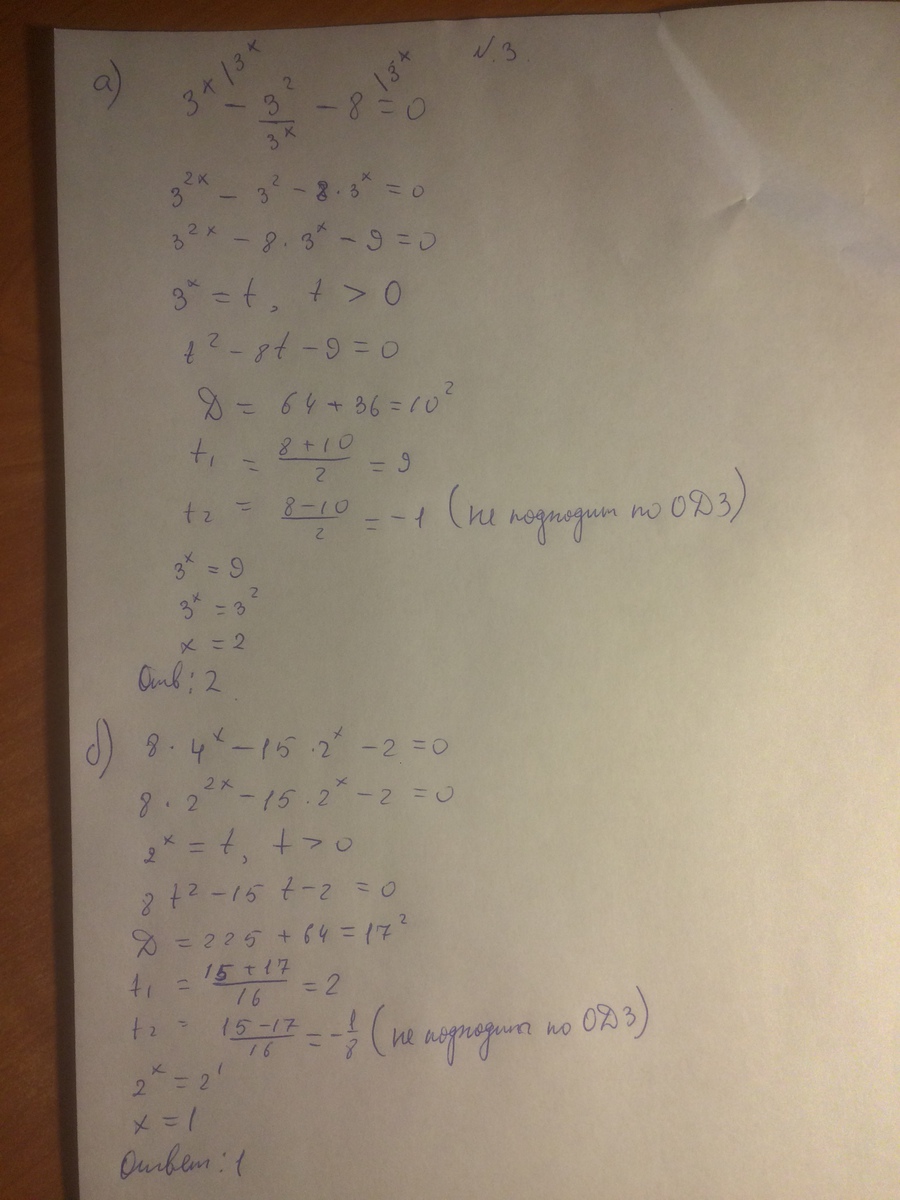 N.3.
а) 3^x |3^x - 3^2/3^x - 8 |3^x = 0
3^2x - 3^2 - 8·3^x = 0
3^2x - 8·3^x - 9 = 0
3^x = t, t > 0
t^2 - 8t - 9 = 0
D = 64 + 36 = 10^2
t1 = (8+10)/2 = 9
t2 = (8-10)/2 = -1 (не подходит по ОДЗ)
3^x = 9
3^x = 3^2
x = 2
Отв: 2
б) 8·4^x - 15·2^x - 2 = 0
8·2^2x - 15·2^x - 2 = 0
2^x = t, t > 0
8t^2 - 15t - 2 = 0
D = 225 + 64 = 17^2
t1 = (15+17)/16 = 2
t2 = (15-17)/16 = -1/8 (не подходит по ОДЗ)
2^x = 2^1
x = 1
Ответ: 1